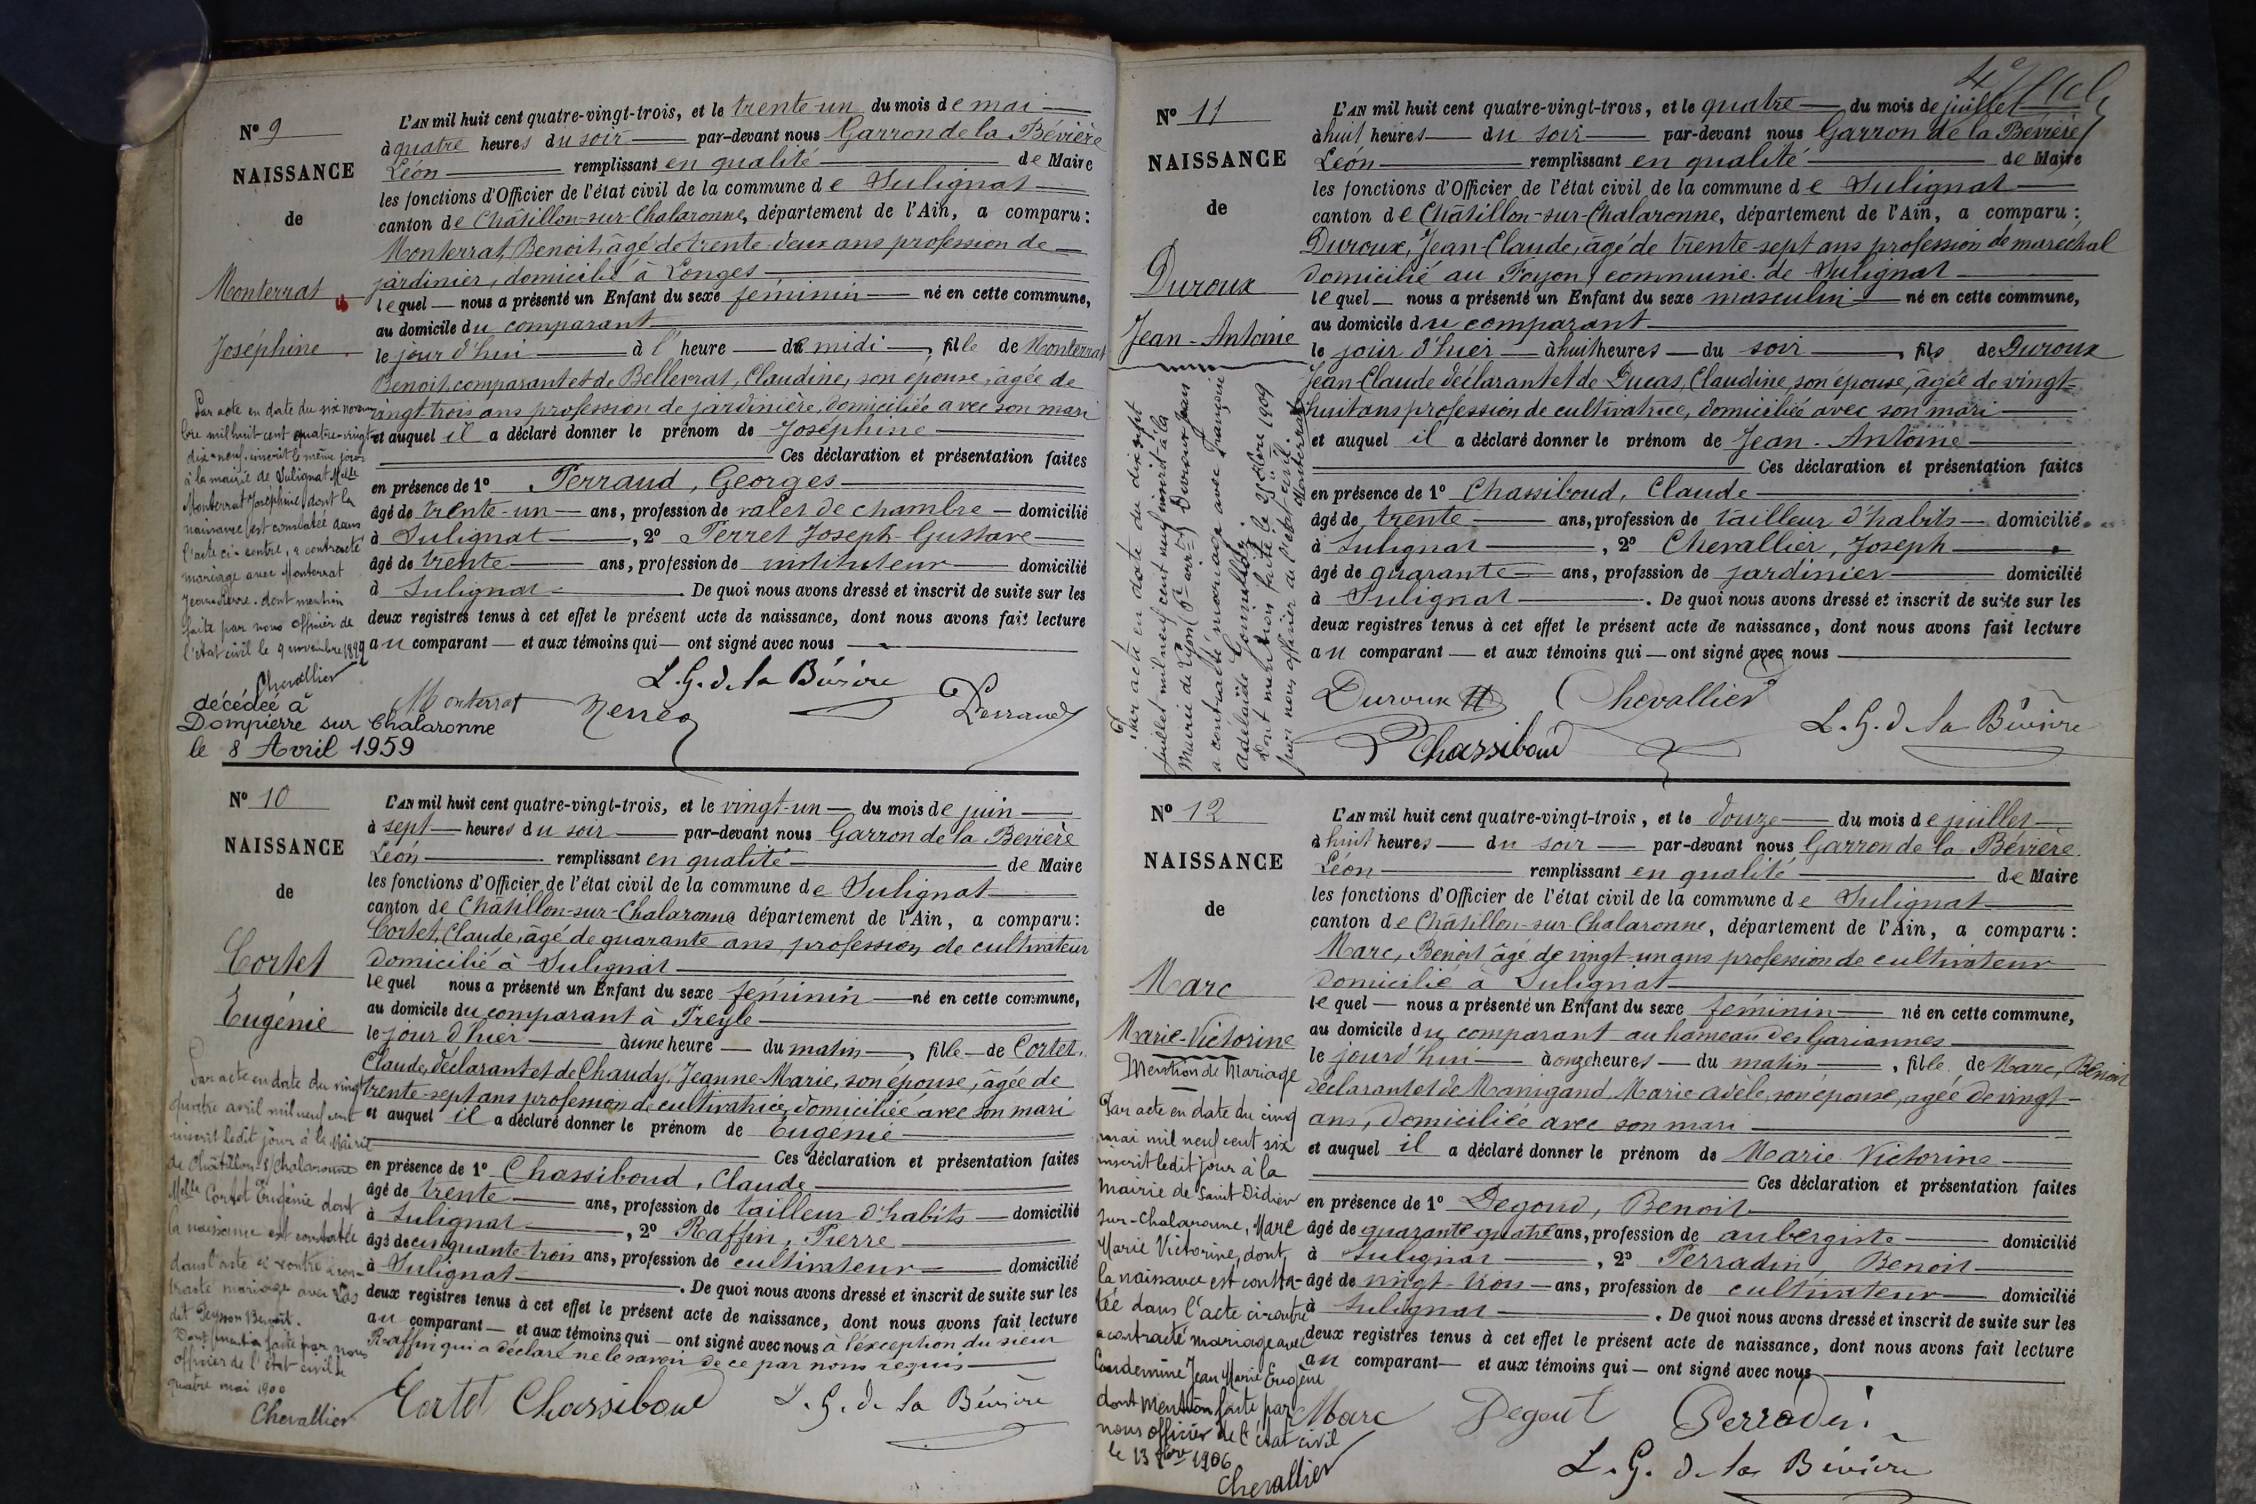 Nº 9
NAISSANCE
de
Monterrat
Joséphine
L'AN mil huit cent quatre-vingt-trois, et le trente-un du mois de mai
à quatre heures du soir par-devant nous Garron de la Bévière
Léon remplissant en qualité de Maire
les fonctions d'Officier de l'état civil de la commune de Sulignat
canton de Châtillon-sur-Chalaronne, département de l'Ain, a comparu :
Monterrat, Benoit, âgé de trente-deux ans profession de
jardinier, domicilié à Longes
lequel nous a présenté un Enfant du sexe féminin né en cette commune,
au domicile du comparant
le jour d'hui à l' heure de midi, fille de Monterrat
Benoit, comparant et de Bellevrat, Claudine, son épouse, âgée de
vingt-trois ans profession de jardinière, domiciliée avec son mari
et auquel il a déclaré donner le prénom de Joséphine
Ces déclaration et présentation faites
en présence de 1º Perraud, Georges
âgé de trente-un ans, profession de valet de chambre domicilié
à Sulignat, 2º Perret Joseph-Gustave
âgé de trente ans, profession de instituteur domicilié
à Sulignat. De quoi nous avons dressé et inscrit de suite sur les
deux registres tenus à cet effet le présent acte de naissance, dont nous avons fait lecture
au comparant et aux témoins qui ont signé avec nous
L. G. de la Bévière
Monterrat Perret Perraud
Par acte en date du six novem
bre mil huit cent quatre-vingt
dix-neuf, inscrit le même jour
à la mairie de Sulignat Melle
Monterrat Joséphine, dont la
naissance est constatée dans
l'acte ci-contre, a contracté
mariage avec Monterrat
Jean-Pierre. dont mention
faite par nous officier de
l'état civil le 9 novembre 1899
Chevallier
décédée à
Dompierre sur Chalaronne
le 8 Avril 1959
Nº 10
NAISSANCE
de
Cortet
Eugénie
L'AN mil huit cent quatre-vingt-trois, et le vingt-un du mois de juin
à sept heures du soir par-devant nous Garron de la Bévière
Léon remplissant en qualité de Maire
les fonctions d'Officier de l'état civil de la commune de Sulignat
canton de Châtillon-sur-Chalaronne département de l'Ain, a comparu :
Cortet, Claude, âgé de quarante ans profession de cultivateur
domicilié à Sulignat
lequel nous a présenté un Enfant du sexe féminin né en cette commune,
au domicile du comparant à Freyle
le jour d'hier à une heure du matin, fille de Cortet,
Claude, déclarant et de Chaudy, Jeanne-Marie, son épouse, âgée de
trente-sept ans profession de cultivatrice, domiciliée avec son mari
et auquel il a déclaré donner le prénom de Eugénie
Ces déclaration et présentation faites
en présence de 1º Chassiboud, Claude
âgé de trente ans, profession de tailleur d'habits domicilié
à Sulignat, 2º Raffin, Pierre
âgé de cinquante-trois ans, profession de cultivateur domicilié
à Sulignat. De quoi nous avons dressé et inscrit de suite sur les
deux registres tenus à cet effet le présent acte de naissance, dont nous avons fait lecture
au comparant et aux témoins qui ont signé avec nous à l'éxception du sieur
Raffin qui a déclaré ne le savoir de ce par nous requis
Cortet Chassiboud L. G. de la Bévière
Par acte en date du vingt
quatre avril mil neuf cent
inscrit ledit jour à la Mairie
de Châtillon s/ Chalaronne
Melle Cortet Eugénie dont
la naissance est constatée
dans l'acte ci contre a con-
tracté mariage avec
dit Peysson Benoit.
Dont mention faite par nous
officier de l'état civil le
quatre mai 1900
Chevallier
Nº 11
NAISSANCE
de
Duroux
Jean-Antoine
L'AN mil huit cent quatre-vingt-trois, et le quatre du mois de juillet
à huit heures du soir par-devant nous Garron de la Bévière
Léon remplissant en qualité de Maire
les fonctions d'Officier de l'état civil de la commune de Sulignat
canton de Châtillon-sur-Chalaronne, département de l'Ain, a comparu :
Duroux, Jean-Claude, âgé de trente-sept ans profession de maréchal
domicilié au Foyon, commune de Sulignat
lequel nous a présenté un Enfant du sexe masculin né en cette commune,
au domicile du comparant
le jour d'hier à huit heures du soir, fils de Duroux
Jean Claude déclarant et de Ducas, Claudine, son épouse, âgée de vingt-
huit ans profession de cultivatrice, domiciliée avec son mari
et auquel il a déclaré donner le prénom de Jean-Antoine
Ces déclaration et présentation faites
en présence de 1º Chassiboud, Claude
âgé de trente ans, profession de tailleur d'habits domicilié
à Sulignat, 2º Chevallier, Joseph
âgé de quarante ans, profession de jardinier domicilié
à Sulignat. De quoi nous avons dressé et inscrit de suite sur les
deux registres tenus à cet effet le présent acte de naissance, dont nous avons fait lecture
au comparant et aux témoins qui ont signé avec nous
Duroux Chevallier
Chassiboud L. G. de la Bévière
Par acte en date du dix sept
juillet mil neuf cent neuf inscrit à la
Mairie de Lyon Duroux Jean
a contracté mariage avec Françoise
Adelaïde
Dont mention faite le 1909
par nous officier de l'état civil.
Monterrat
Nº 12
NAISSANCE
de
Marc
Marie-Victorine
L'AN mil huit cent quatre-vingt-trois, et le douze du mois de juillet
à huit heures du soir par-devant nous Garron de la Bévière
Léon remplissant en qualité de Maire
les fonctions d'Officier de l'état civil de la commune de Sulignat
canton de Châtillon-sur-Chalaronne, département de l'Ain, a comparu :
Marc, Benoit âgé de vingt-un ans profession de cultivateur
domicilié à Sulignat
lequel nous a présenté un Enfant du sexe féminin né en cette commune,
au domicile du comparant au hameau des Gariannes
le jour d'hui à onze heures du matin, fille de Marc, Benoit
déclarant et de Manigand, Marie Adèle, son épouse, âgée de vingt-
ans, domiciliée avec son mari
et auquel il a déclaré donner le prénom de Marie Victorine
Ces déclaration et présentation faites
en présence de 1º Degoud, Benoit
âgé de quarante quatre ans, profession de aubergiste domicilié
à Sulignat, 2º Perradin, Benoit
âgé de vingt-trois ans, profession de cultivateur domicilié
à Sulignat. De quoi nous avons dressé et inscrit de suite sur les
deux registres tenus à cet effet le présent acte de naissance, dont nous avons fait lecture
au comparant et aux témoins qui ont signé avec nous
Marc Degout Perradin
L. G. de la Bévière
Mention de Mariage
Par acte en date du cinq
mai mil neuf cent six
inscrit ledit jour à la
mairie de Saint Didier
sur-Chalaronne, Marc
Marie Victorine, dont
la naissance est consta-
tée dans l'acte ci contre
a contracté mariage avec
Condemine Jean Marie Eugène
dont mention faite par
nous officier de l'état civil
le 13 1906
Chevallier